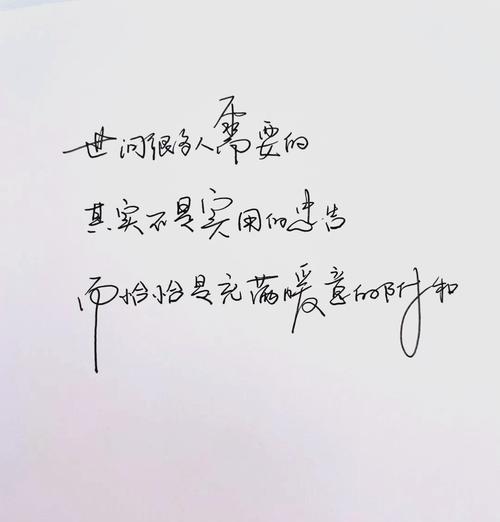 世间很多人需要的
其实不是实用的忠告
而恰恰是充满暖意的附和